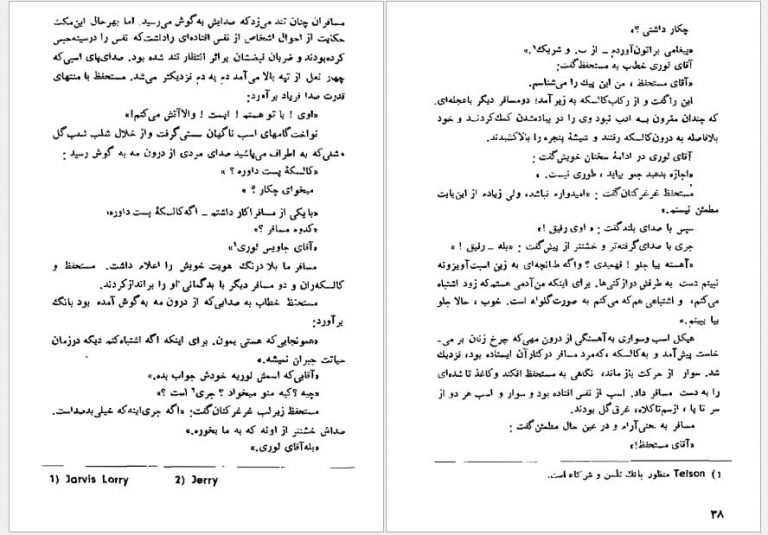 مسافران چنان تند میزد که صدایش به گوش می‌رسید. اما بهر حال این مکث
حکایت از احوال اشخاص از نفس افتاده‌ای را داشت که نفس را در سینه حبس
کرده بودند و ضربان نبضشان بر اثر انتظار تند شده بود. صدای پای اسبی که
چهار نعل از تپه بالا می‌آمد دم به دم نزدیکتر می‌شد. مستحفظ با منتهای
قدرت صدا فریاد برآورد:
«اوی ! با تو هستم ! ایست ! والا آتش می‌کنم!»
نواخت گامهای اسب ناگهان سستی گرفت و از خلال شلپ شلپ گل
و شلی که به اطراف می‌پاشید صدای مردی از درون مه به گوش رسید :
«کالسکهٔ پست داوره؟ »
میخوای چکار ؟ »
«با یکی از مسافرا کار داشتم ـ اگه کالسکهٔ پست داوره،
«کدوم مسافر ؟»
«آقای جاویس لوری۱»
مسافر ما بلادرنگ هویت خویش را اعلام داشت. مستحفظ و
کالسکه‌ران و دو مسافر دیگر با بدگمانی او را برانداز کردند.
مستحفظ خطاب به صدایی که از درون مه به گوش آمده بود بانگ
برآورد:
«همونجایی که هستی بمون. برای اینکه اگه اشتباه کنم دیگه در زمان
حیاتت جبران نمیشه.»
«آقایی که اسمش لوریه خودش جواب بده.»
«چیه ؟ کیه منو میخواد ؟ جری۲ است ؟»
مستحفظ زیر لب غرغرکنان گفت: «اگه جری اینه که خیلی بد صداست.
صداش خشنتر از اونه که به ما بخوره.»
«بله آقای لوری.»
1) Jarvis Lorry 2) Jerry
چکار داشتی ؟»
«پیغامی براتون آوردم ـ از س. و شریک۱.»
آقای لوری خطاب به مستحفظ گفت:
«آقای مستحفظ ، من این پیک را می‌شناسم.
این را گفت و از رکاب کالسکه به زیر آمد؛ دو مسافر دیگر با عجله‌ای.
که چندان مقرون به ادب نبود وی را در پیاده شدن کمک کردند و خود
بلافاصله به درون کالسکه رفتند و شیشهٔ پنجره را بالا کشیدند.
آقای لوری در ادامهٔ سخنان خویش گفت:
«اجازه بدهید جلو بیاید ، طوری نیست. »
مستحفظ غرغرکنان گفت : «امیدوارم نباشد، ولی زیاده از این بابت
مطمئن نیستم.»
سپس با صدای بلند گفت: « اوی رفیق !»
جری با صدای گرفته‌تر و خشنتر از پیش گفت: «بله ـ رفیق ! »
«آهسته بیا جلو ! فهمیدی ؟ و اگه طپانچه‌ای به زین اسبت آویزونه
نبینم دست به طرفش دراز کنی‌ها. برای اینکه من آدمی هستم که زود اشتباه
می‌کنم، و اشتباهی هم که می‌کنم به صورت گلوله است. خوب ، حالا جلو
بیا ببینم.»
هیکل اسب و سواری به آهستگی از درون مهی که چرخ زنان بر می‌-
خاست پیش آمد و به کالسکه ، که مرد مسافر در کنار آن ایستاده بود، نزدیک
شد. سوار از حرکت باز ماند، نگاهی به مستحفظ افکند و کاغذ تا شده‌ای
را به دست مسافر داد. اسب از نفس افتاده بود و سوار و اسب هر دو از
سر تا پا ، از سم تا کلاه، غرق گل بودند.
مسافر به لحنی آرام و در عین حال مطمئن گفت :
«آقای مستحفظ!»
۱) Telson منظور بانک تلسن و شرکاء است.
۳۸